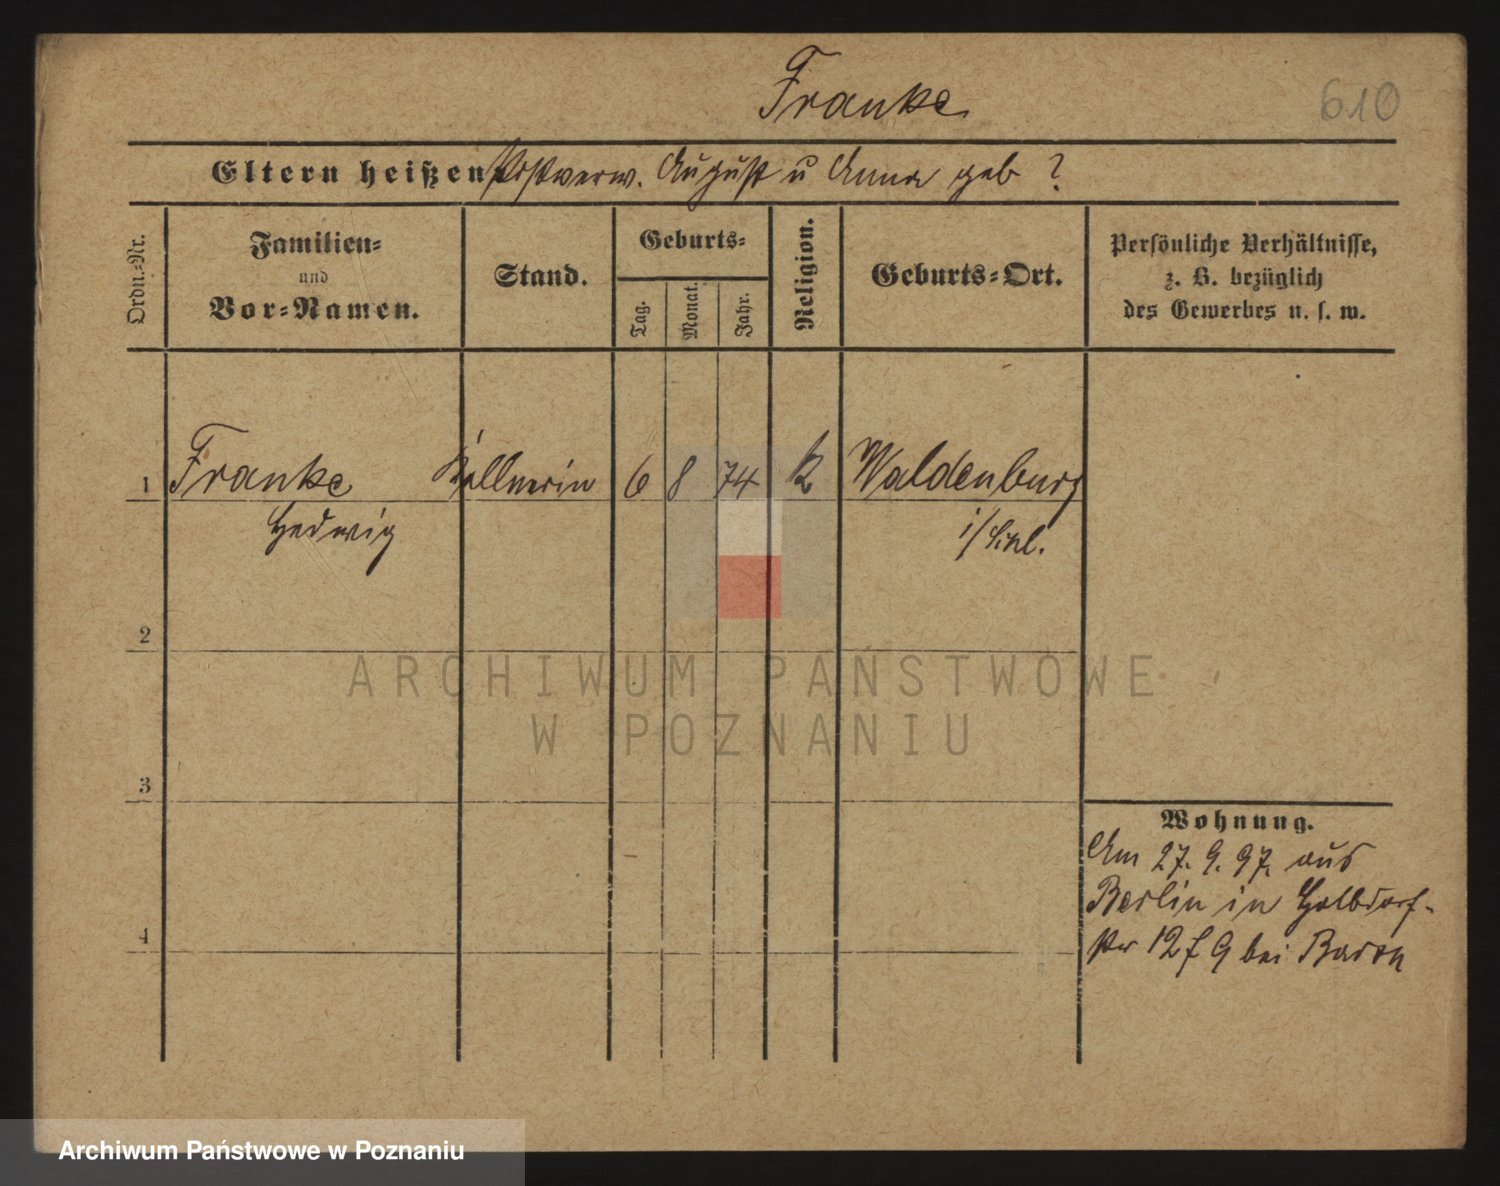 Franke
610
Eltern heißen Postverw. August u Anna geb ?
Ordn.-Nr.
Familien-
und
Vor-Namen.
Stand.
Geburts-
Tag.
Monat.
Jahr.
Religion.
Geburts-Ort.
Persönliche Verhältnisse,
z. B. bezüglich
des Gewerbes u. s. w.
1 Franke Kellnerin 6 8 74 k Waldenburg
Hedwig i/Schl.
2
ARCHIWUM PAŃSTWOWE
W POZNANIU
3
Wohnung.
Am 27. 9. 97. aus
Berlin in Halbdorf-
str 12 f 9 bei Baron
4
Archiwum Państwowe w Poznaniu